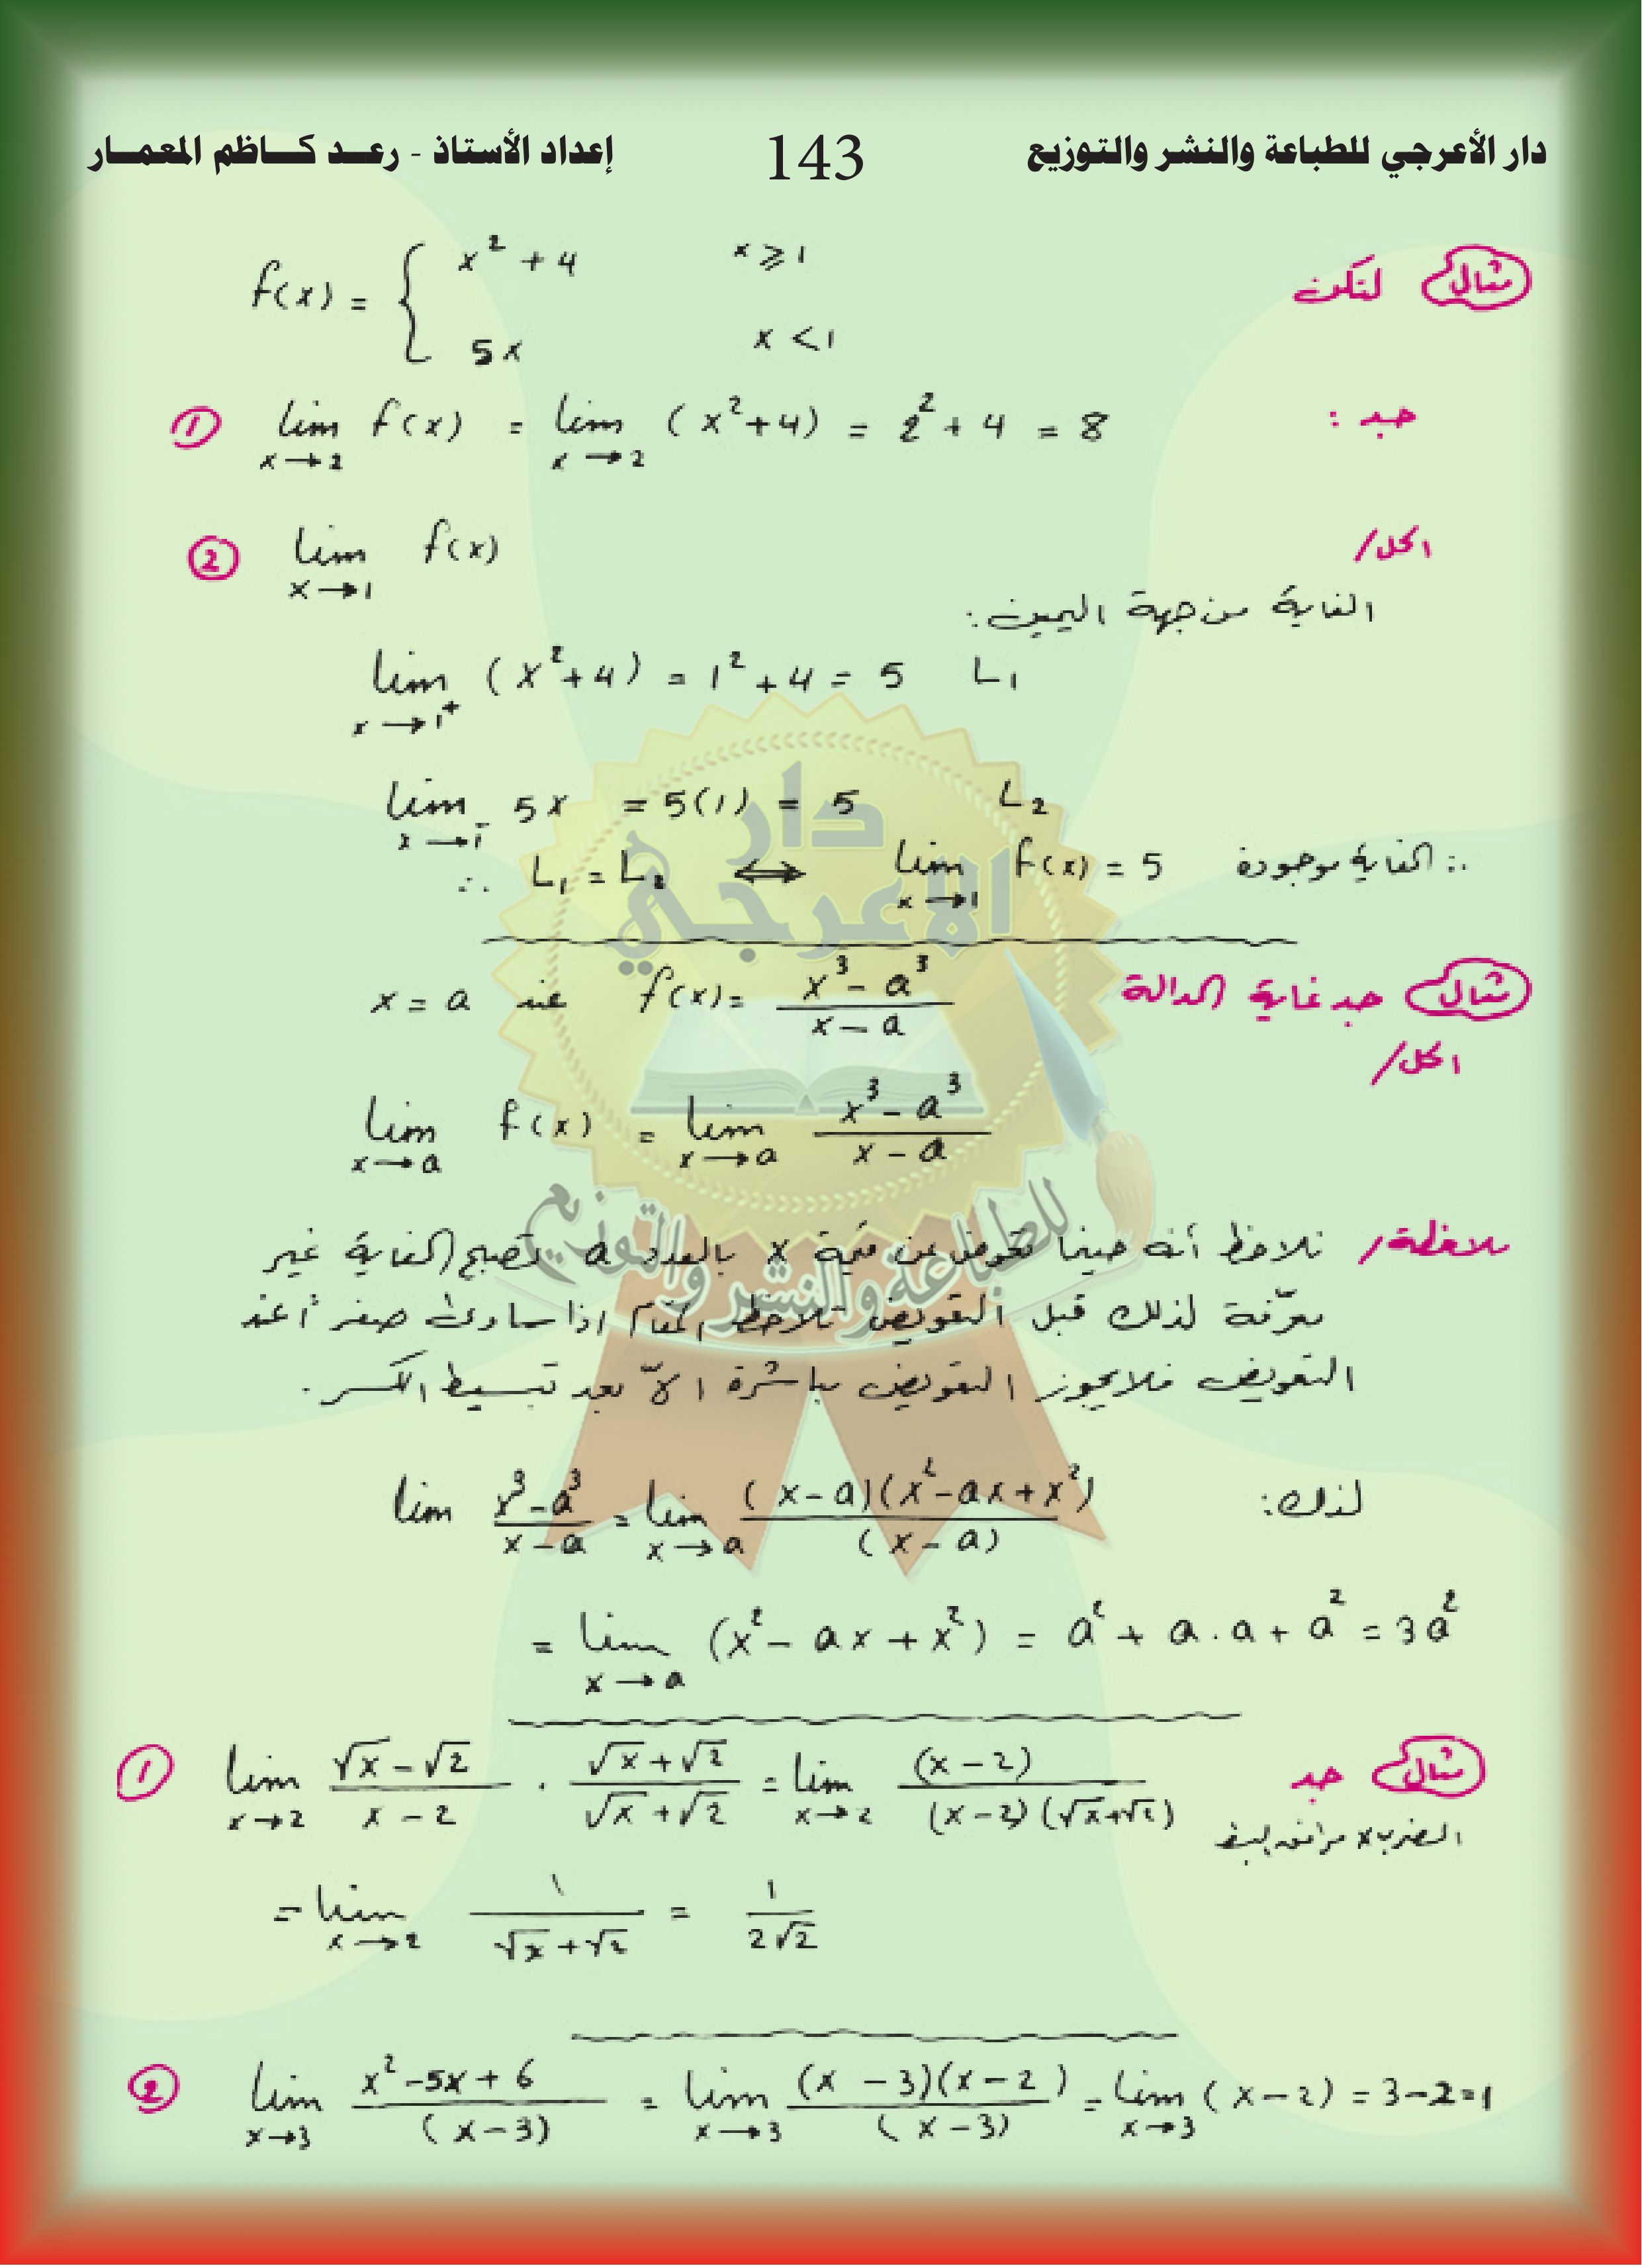 دار الأعرجي للطباعة والنشر والتوزيع 143 إعداد الأستاذ - رعد كاظم المعمار
مثال لتكن f(x) = { x² + 4 x ⩾ 1
5x x < 1
جد :
① lim x→2 f(x) = lim x→2 (x²+4) = 2² + 4 = 8
② lim x→1 f(x)
الحل/
الغاية من جهة اليمين :
lim x→1⁺ (x²+4) = 1² + 4 = 5 L₁
lim x→1⁻ 5x = 5(1) = 5 L₂
∴ L₁ = L₂ ⟺ lim x→1 f(x) = 5 ∴ الغاية موجودة
مثال جد غاية الدالة f(x) = (x³ - a³)/(x - a) عند x = a
الحل/
lim x→a f(x) = lim x→a (x³ - a³)/(x - a)
ملاحظة/ نلاحظ أنه حينما نعوض عن قيمة x بالعدد a تصبح الغاية غير
معرّفة لذلك قبل التعويض نلاحظ المقام اذا ساوى صفراً عند
التعويض فلا يجوز التعويض مباشرة الاّ بعد تبسيط الكسر.
لذلك:
lim (x³ - a³)/(x - a) = lim x→a (x - a)(x² - ax + x²)/(x - a)
= lim x→a (x² - ax + x²) = a² + a . a + a² = 3a²
مثال جد
① lim x→2 (√x - √2)/(x - 2) . (√x + √2)/(√x + √2) = lim x→2 (x - 2)/((x - 2)(√x + √2))
الضرب x مرافق البسط
= lim x→2 1/(√x + √2) = 1/(2√2)
② lim x→3 (x² - 5x + 6)/(x - 3) = lim x→3 (x - 3)(x - 2)/(x - 3) = lim x→3 (x - 2) = 3 - 2 = 1
دار
الاعرجي
للطباعة والنشر والتوزيع